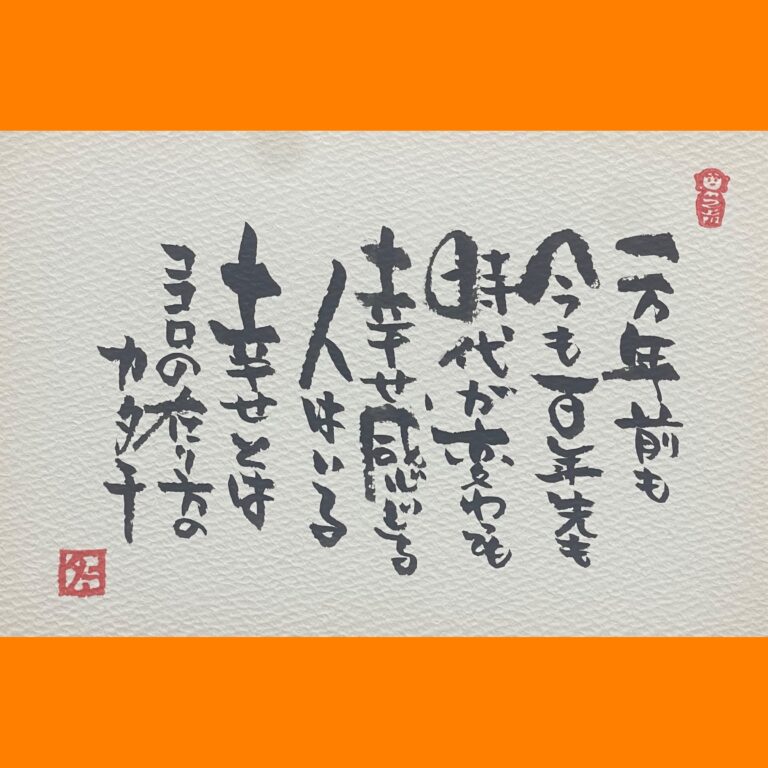 一万年前も
今も百年先も
時代が変わっても
幸せ感じる
人はいる
幸せとは
ココロの在り方の
カタチ